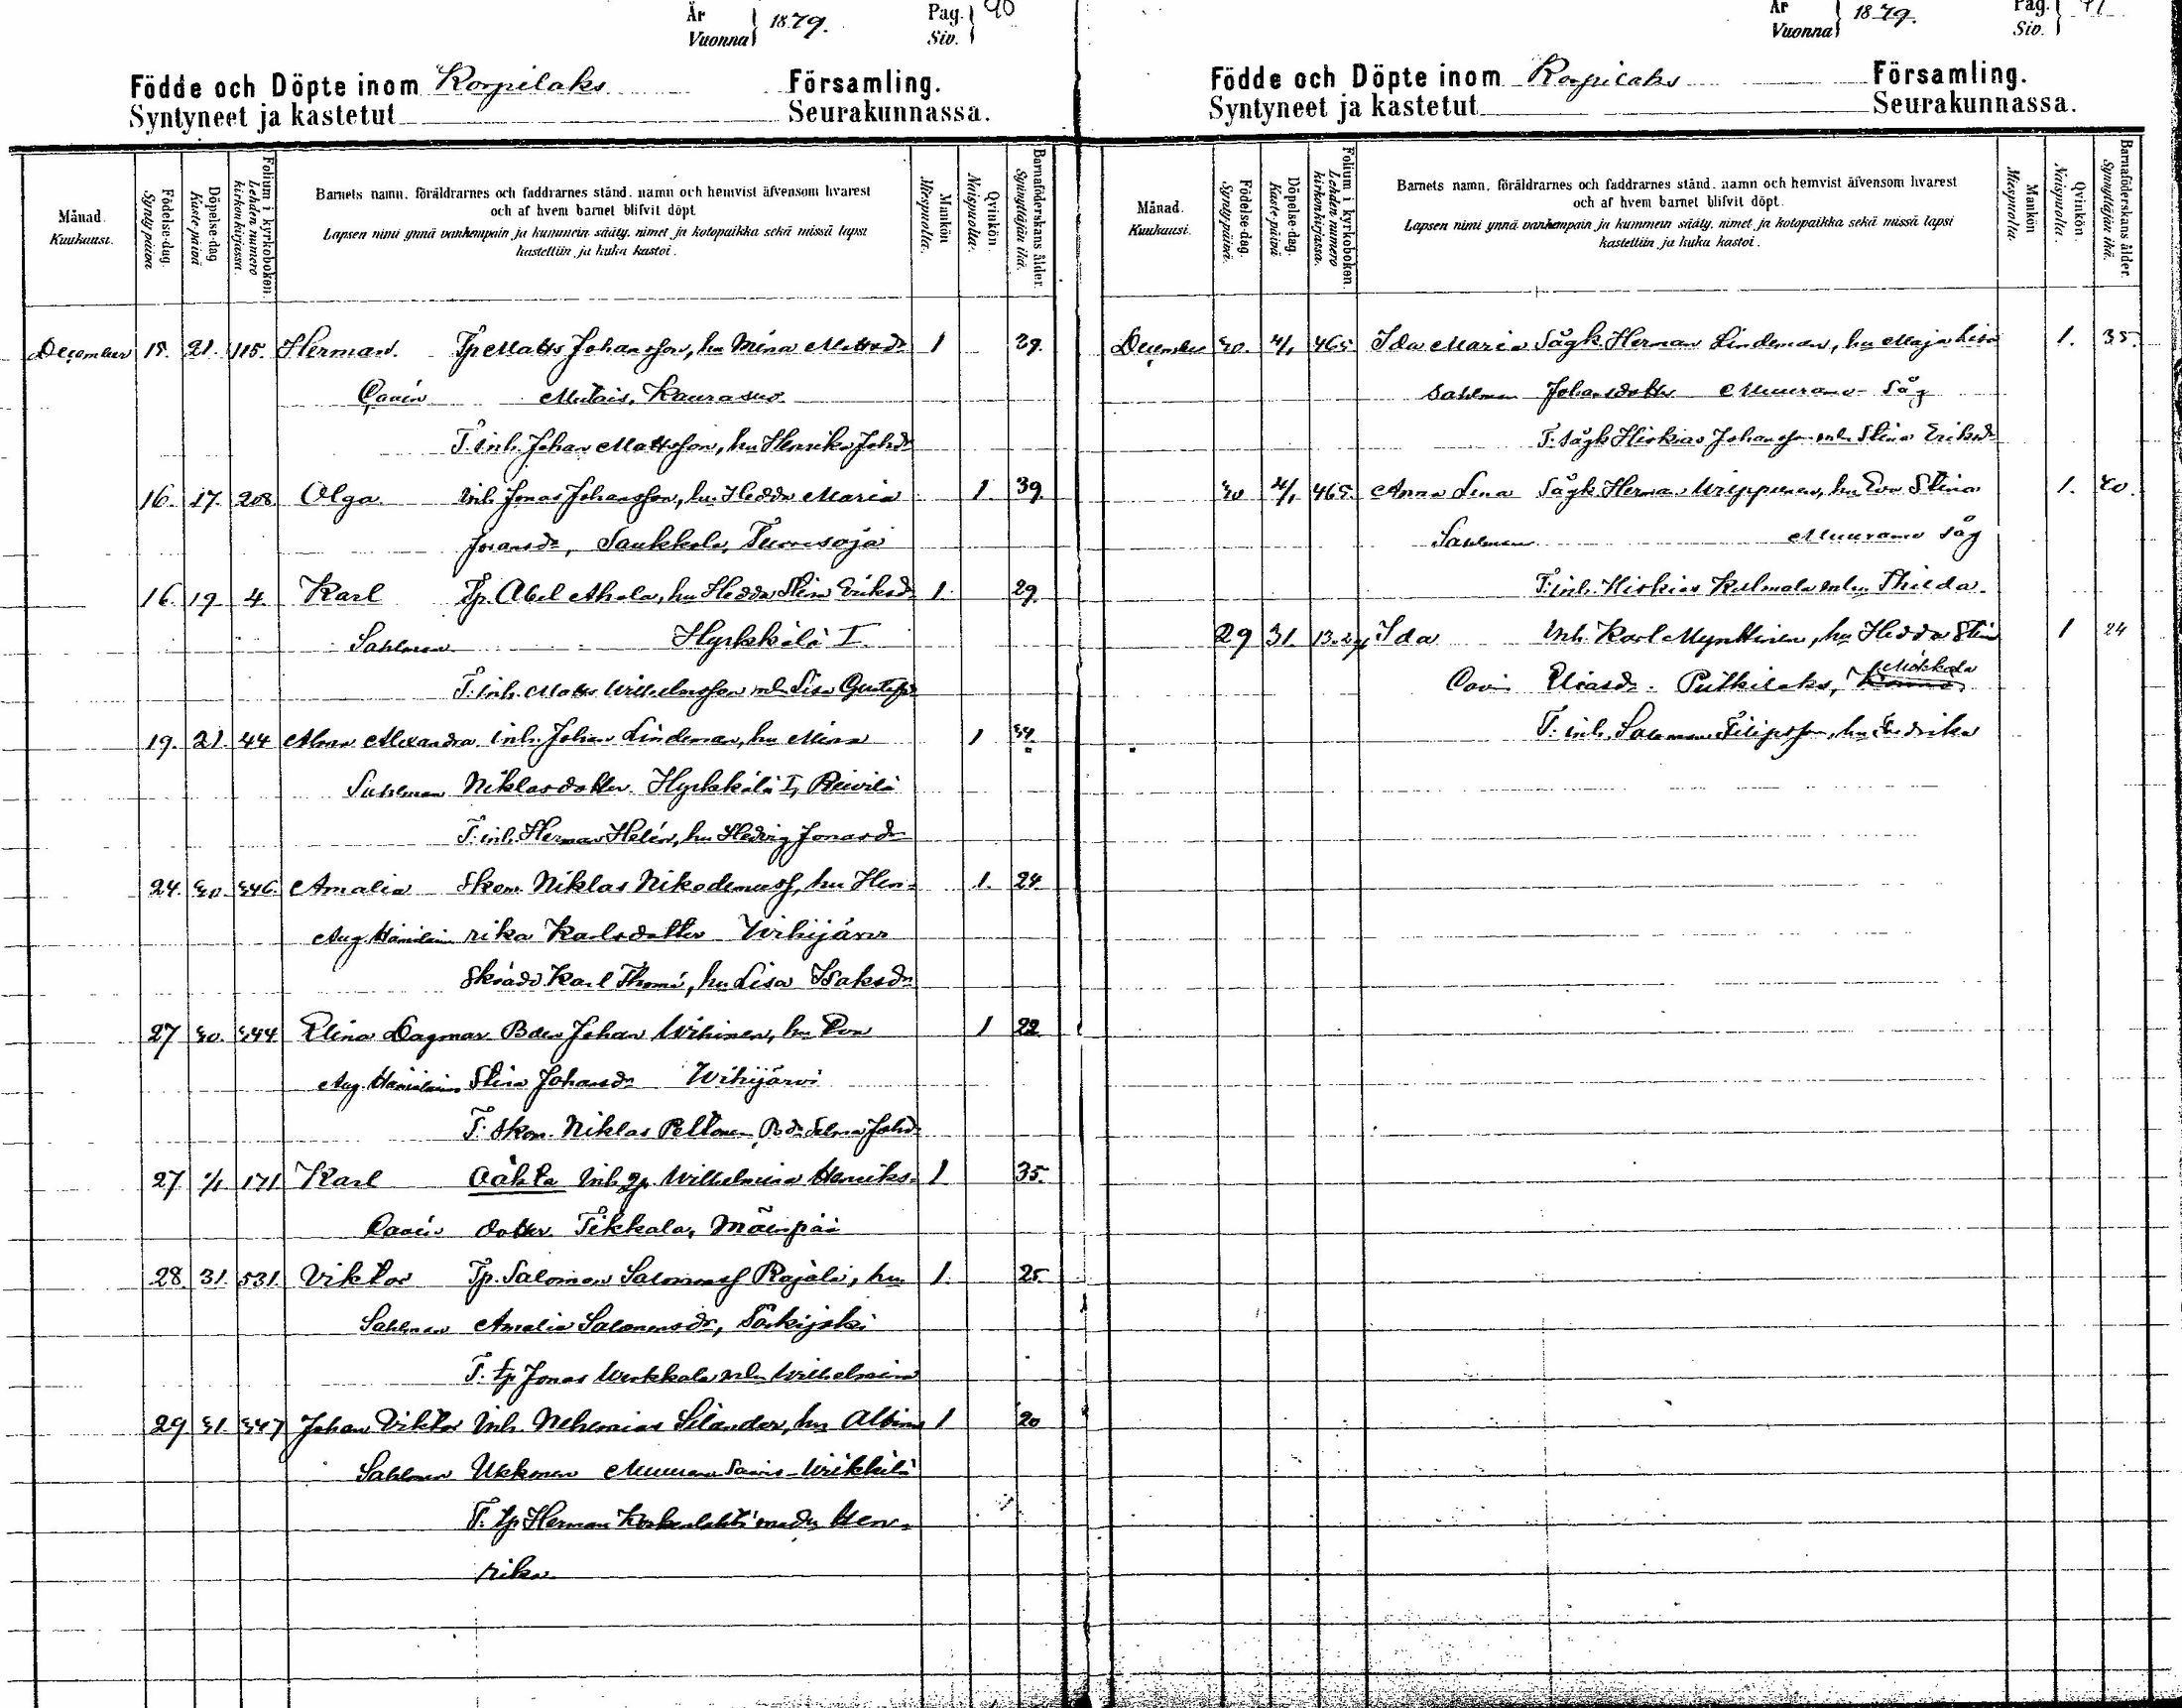 År
Vuonna } 1879.
Pag.
Siv. } 90
Födde och Döpte inom Korpilaks Församling.
Syntyneet ja kastetut Seurakunnassa.
Månad.
Kuukausi.
Födelse-dag.
Synty päivä
Döpelse-dag
Kaste-päivä
Folium i kyrkoboken.
Lehden numero kirkonkirjassa.
Barnets namn, föräldrarnes och faddrarnes stånd, namn och hemvist äfvensom hvarest
och af hvem barnet blifvit döpt
Lapsen nimi ynnä vanhempain ja kummein sääty, nimet ja kotopaikka sekä missä lapsi
kastettiin ja kuka kastoi.
Mankön
Miespuolia.
Qvinkön.
Naispuolia.
Barnaföderskans ålder.
Synnyttäjän ikä.
December 15. 21. 115. Herman. Tp Matts Johansson, hu Mina Mattsdr 1 39.
Cavén Mutais, Kaurasuo.
T. inh. Johan Mattsson, hu Henrika Johdr
16. 17. 208 Olga inh. Jonas Johansson, hu Hedda Maria 1. 39.
Saukkola,
16. 19 4. Karl Tp. Abel Ahola, hu Hedda Stina Eriksdr 1. 29.
Sahlman Hyrkkälä I.
T. inh. Matts Wilhelmsson Lisa
19. 21. 44 Alexandra inh. Johan Lindeman, hu Mina 1
Sahlman Niklasdotter Hyrkkälä I,
T. inh. Herman Helén, hu Hedvig Jonasdr
24. 30. 346. Amalia Skom. Niklas Nikodemuss, hu Hen- 1. 24.
Aug. Hämäläinen rika Karlsdotter Wihijärvi
Karl Thomé, hu Lisa Isaksdr
27 30. 344 Elina Dagmar Johan Wihinen, hu Eva 1 22
Aug. Hämäläinen Stina Johansdr Wihijärvi
T. Skom. Niklas Peltonen,
27 1/1 171 Karl Oäkta inh. Wilhelmina Henriks- 1 35.
Cavén dotter Tikkala, Mäenpää
28. 31. 531. Viktor Tp. Salomon Rajala, hu 1. 25.
Sahlman Amalia Salomonsdr, Särkijoki
T. tp Jonas Wilhelmina
29 31. 347 Johan Viktor inh. Nehemias Silander, hu Albina 1 20
Sahlman Ukkonen
T. tp Herman Hen-
rika
År
Vuonna } 1879.
Pag.
Siv. } 91
Födde och Döpte inom Korpilaks Församling.
Syntyneet ja kastetut Seurakunnassa.
Månad.
Kuukausi.
Födelse-dag.
Synty-päivä.
Döpelse-dag.
Kaste-päivä
Folium i kyrkoboken.
Lehden numero kirkonkirjassa.
Barnets namn, föräldrarnes och faddrarnes stånd, namn och hemvist äfvensom hvarest
och af hvem barnet blifvit döpt.
Lapsen nimi ynnä vanhempain ja kummein sääty, nimet ja kotopaikka sekä missä lapsi
kastettiin ja kuka kastoi.
Mankön
Miespuolia.
Qvinkön.
Naispuolia.
Barnaföderskans ålder.
Synnyttäjän ikä.
December 30. 465 Ida Maria Sågk. Herman Lindeman, hu Maja Lisa 1. 35.
Sahlman Johansdotter Muurame Såg
T. Sågk Hiskias Johansson Stina Eriksdr
30 465. Anna Lena Sågk. Herman hu Eva Stina 1.
Sahlman Muurame Såg
T. inh. Hiskias Kulmala Thilda.
29 31. Ida inh. Karl Mynttinen, hu Hedda Stina 1 24
Cavén Eliasdr. Putkilaks, Mökkola
T. inh. Salomon Filipsson, hu Fredrika